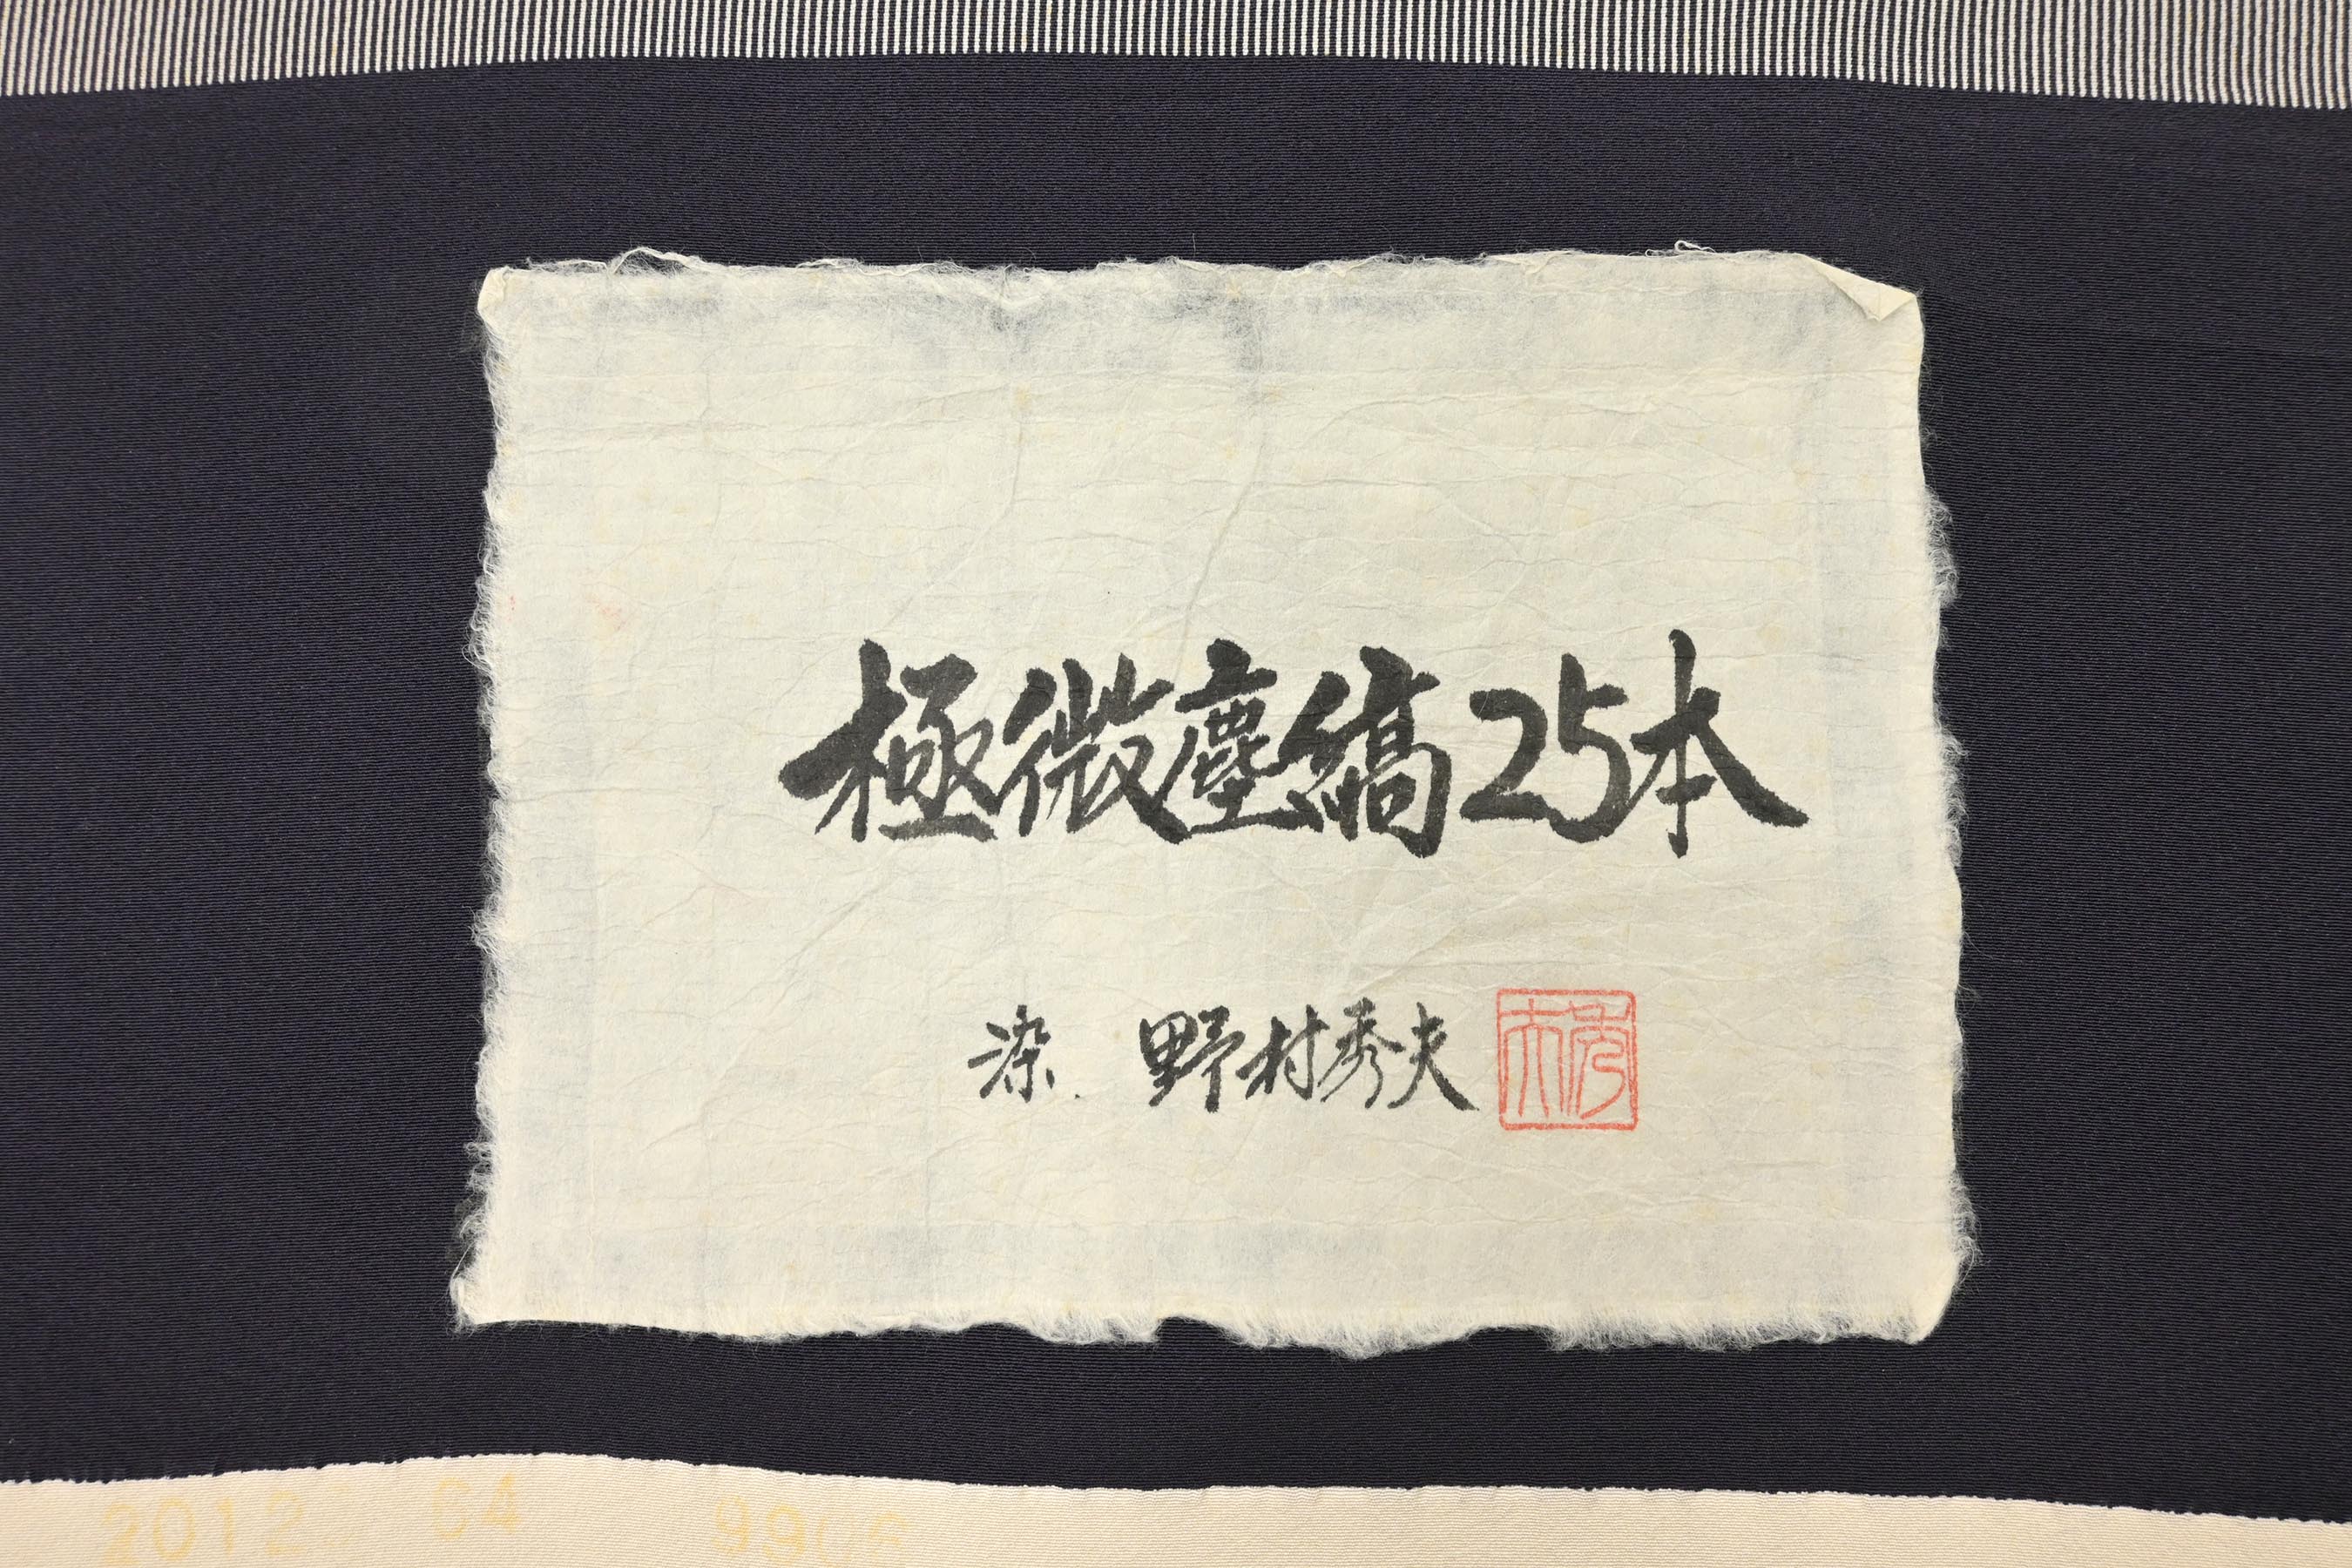 極微塵縞25本
染. 野村秀夫
秀夫
2012 64 9906